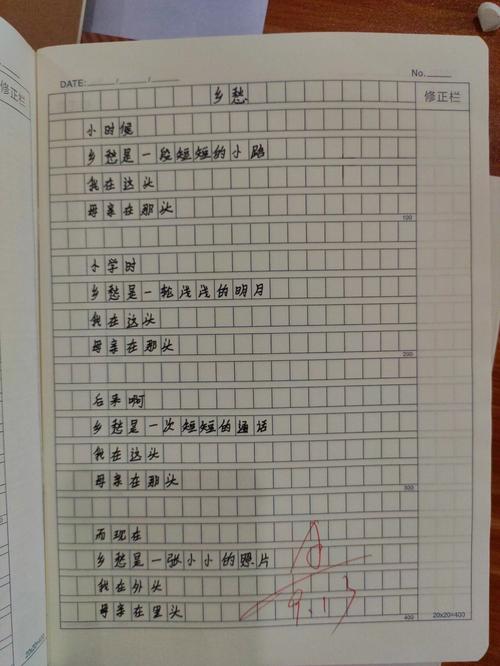 DATE: / /
No.
修正栏
乡愁
小时候
乡愁是一段短短的小路
我在这头
母亲在那头
100
小学时
乡愁是一轮浅浅的明月
我在这头
母亲在那头
200
后来啊
乡愁是一次短短的通话
我在这头
母亲在那头
300
而现在
乡愁是一张小小的照片
我在外头
母亲在里头
9.13
400
20x20=400
修正栏
20x20=400